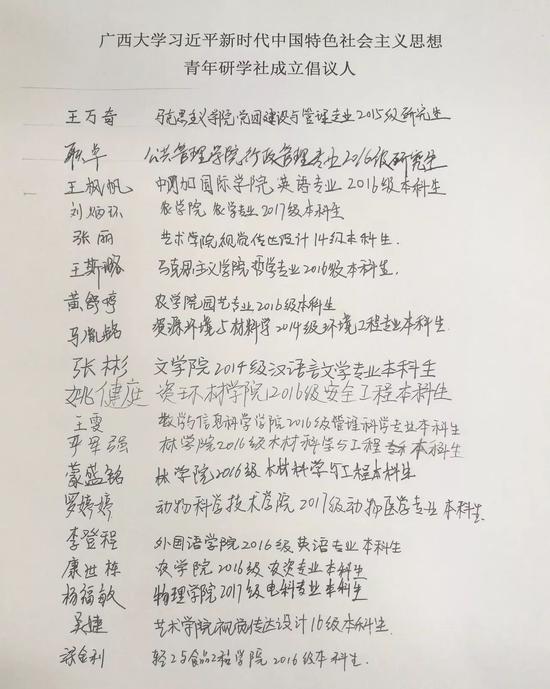 广西大学习近平新时代中国特色社会主义思想
青年研学社成立倡议人
王万奇 马克思主义学院党团建设与管理专业2015级研究生
耿卓 公共管理学院行政管理专业2016级研究生
王枫帆 中加国际学院英语专业2016级本科生
刘炳环 农学院农学专业2017级本科生
张丽 艺术学院视觉传达设计14级本科生.
王斯璐 马克思主义学院哲学专业2016级本科生.
黄舒婷 农学院园艺专业2016级本科生
马胤铭 资源环境与材料学2014级环境工程专业本科生.
张彬 文学院2014级汉语言文学专业本科生
姚健庭 资环材学院2016级安全工程本科生
王雯 数学与信息科学学院2016级管理科学专业本科生
严军强 林学院2016级木材科学与工程 本科生
蒙盛铭 林学院2016级木材科学与工程本科生
罗婷婷 动物科学技术学院2017级动物医学专业本科生.
李登程 外国语学院2016级英语专业本科生
康世栋 农学院2016级农资专业本科生
杨福敏 物理学院2017级电科专业本科生
吴婕 艺术学院视觉传达设计16级本科生.
梁金利 轻工与食品工程学院2016级本科生.